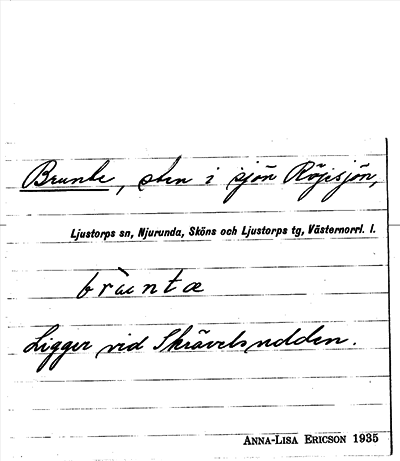 Brunte, sten i sjön Röjesjön,
Ljustorps sn, Njurunda, Sköns och Ljustorps tg, Västernorrl. l.
brùntæ
Ligger vid Skrävelsudden.
ANNA-LISA ERICSON 1935